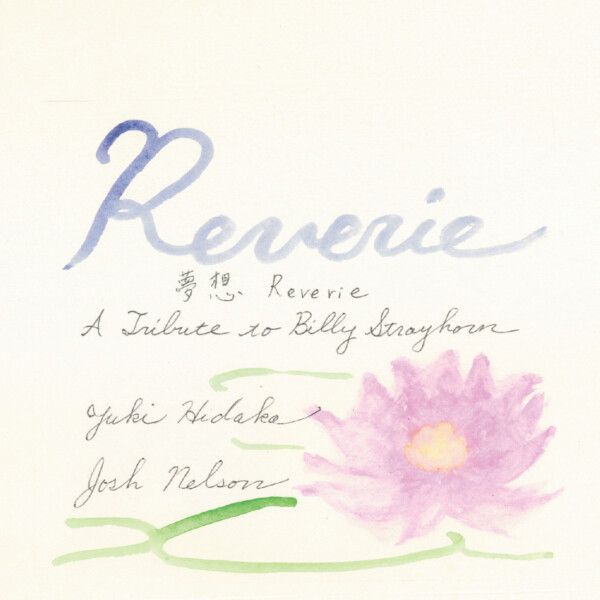 Reverie
夢想 Reverie
A Tribute to Billy Strayhorn
Yuki Hidaka
Josh Nelson